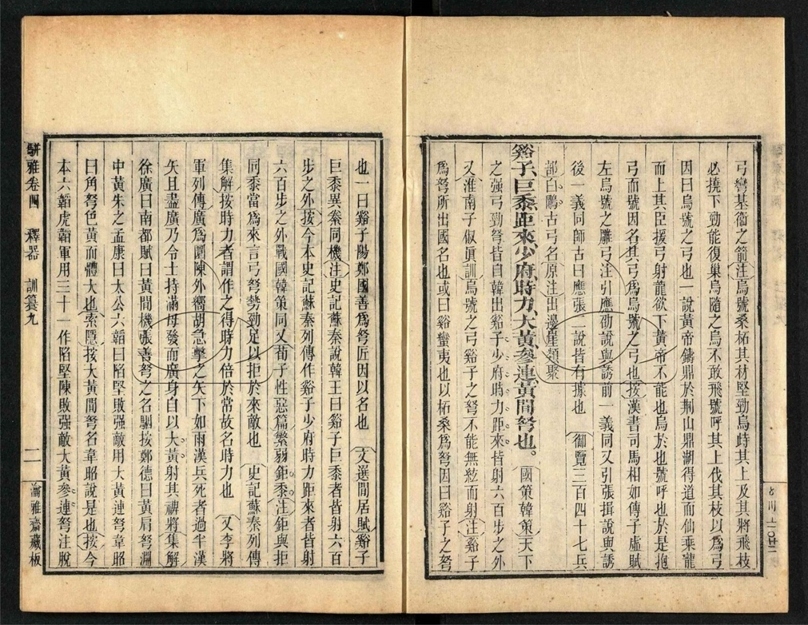 弓彎基衞之箭注烏號桑柘其材堅勁烏峙其上及其將飛枝
必撓下勁能復巢烏隨之烏不敢飛號呼其上伐其枝以爲弓
因曰烏號之弓也一說黃帝鑄鼎於荆山鼎湖得道而仙乘龍
而上其臣援弓射龍欲下黃帝不能也烏於也號呼也於是抱
弓而號因名其弓爲烏號之弓也按漢書司馬相如傳子虛賦
左烏號之雕弓注引應劭說與誘前一義同又引張揖說與誘
後一義同師古曰應張二說皆有據也 御覽三百四十七兵
部白鵰古弓名原注出邊崖類聚
谿子、巨黍、距來、少府、時力、大黃、參連、黃間、弩也。 國策韓策天下
之强弓勁弩皆自韓出谿子少府時力距來皆射六百步之外
又淮南子俶眞訓烏號之弓谿子之弩不能無絃而射注谿子
爲弩所出國名也或曰谿蠻夷也以柘桑爲弩因曰谿子之弩
也一曰谿子陽鄭國善爲弩匠因以名也 文選閒居賦谿子
巨黍異絭同機注史記蘇秦說韓王曰谿子巨黍者皆射六百
步之外按今本史記蘇秦列傳作谿子少府時力距來者皆射
六百步之外戰國韓策同又荀子性惡篇繁弱鉅黍注鉅與拒
同黍當爲來言弓弩勢勁足以拒於來敵也 史記蘇秦列傳
集解按時力者謂作之得時力倍於常故名時力也 又李將
軍列傳廣爲圜陳外嚮胡急擊之矢下如雨漢兵死者過半漢
矢且盡廣乃令士持滿毋發而廣身自以大黃射其裨將集解
徐廣曰南都賦曰黃間機張善弩之名駰按鄭德曰黃肩弩淵
中黃朱之孟康曰太公六韜曰陷堅敗强敵用大黃連弩韋昭
曰角弩色黃而體大也索隱按大黃間弩名韋昭說是也按今
本六韜虎韜軍用三十一作陷堅陳敗强敵大黃參連弩注脫
駢雅卷四 釋器 訓纂九
二
瀹雅齋藏板